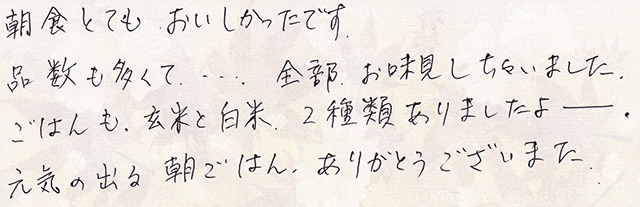 朝食とても おいしかったです.
品数も多くて.‥‥. 全部. お味見しちゃいました.
ごはんも. 玄米と白米. 2種類ありましたよ──.
元気の出る 朝ごはん. ありがとうございました.